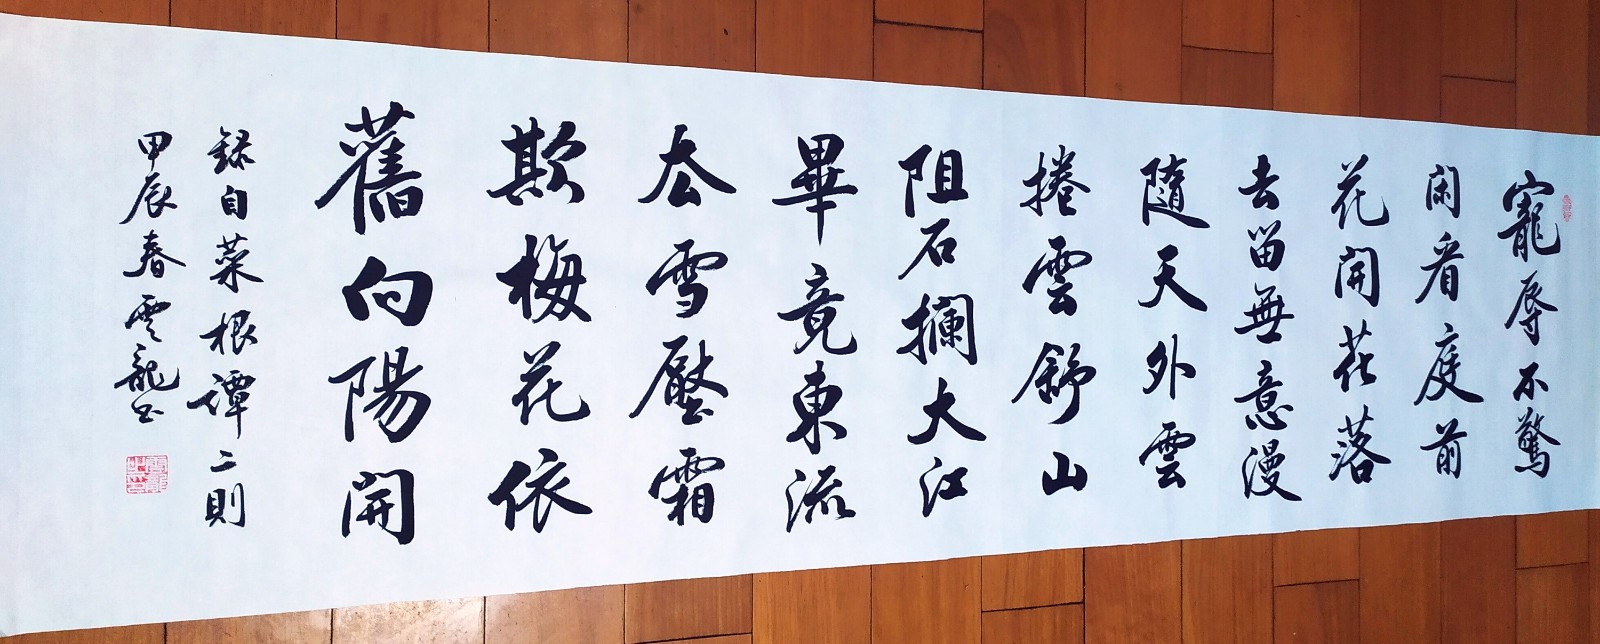 寵辱不驚
閑看庭前
花開花落
去留無意漫
隨天外雲
捲雲舒山
阻石攔大江
畢竟東流
去雪壓霜
欺梅花依
舊向陽開
錄自菜根譚二則
甲辰春雲龍书